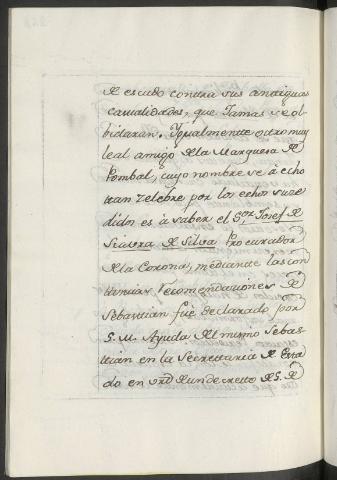 de escudo contra sus antiguas
casualidades, que Jamas se ol-
bidaran. Igualmente otro muy
leal amigo de la Marquesa de
Pombal, cuyo nombre se à echo
tan zelebre por los echos suze
didos es à saber el Sor. Josef de
Seavra de Silva Procurador
de la Corona, mediante las con
tinuas recomendaciones de
Sebastian fue declarado por
S. M. Ayuda del mismo Sebas-
tian en la Secretaria de Esta
do en ord. de un decreto de S. de